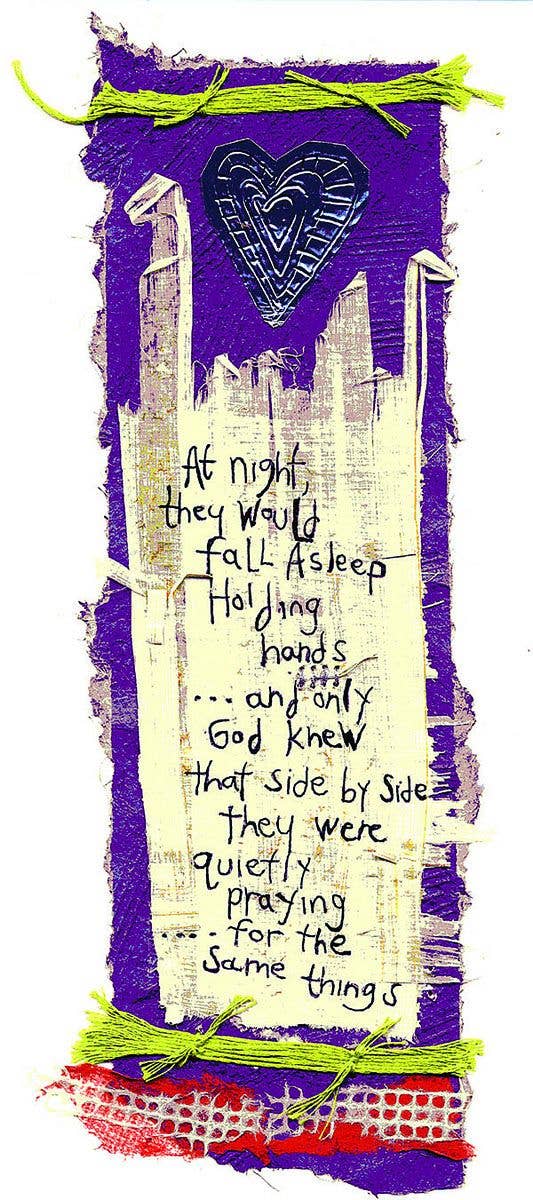 At night,
they would
fall Asleep
Holding
hands
... and only
God knew
that side by side
they were
quietly
praying
.... for the
same things